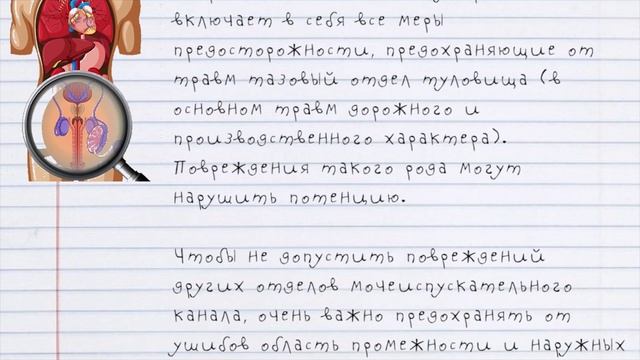 включает в себя все меры
предосторожности, предохраняющие от
травм тазовый отдел туловища (в
основном травм дорожного и
производственного характера).
Повреждения такого рода могут
нарушить потенцию.
Чтобы не допустить повреждений
других отделов мочеиспускательного
канала, очень важно предохранять от
ушибов область промежности и наружных